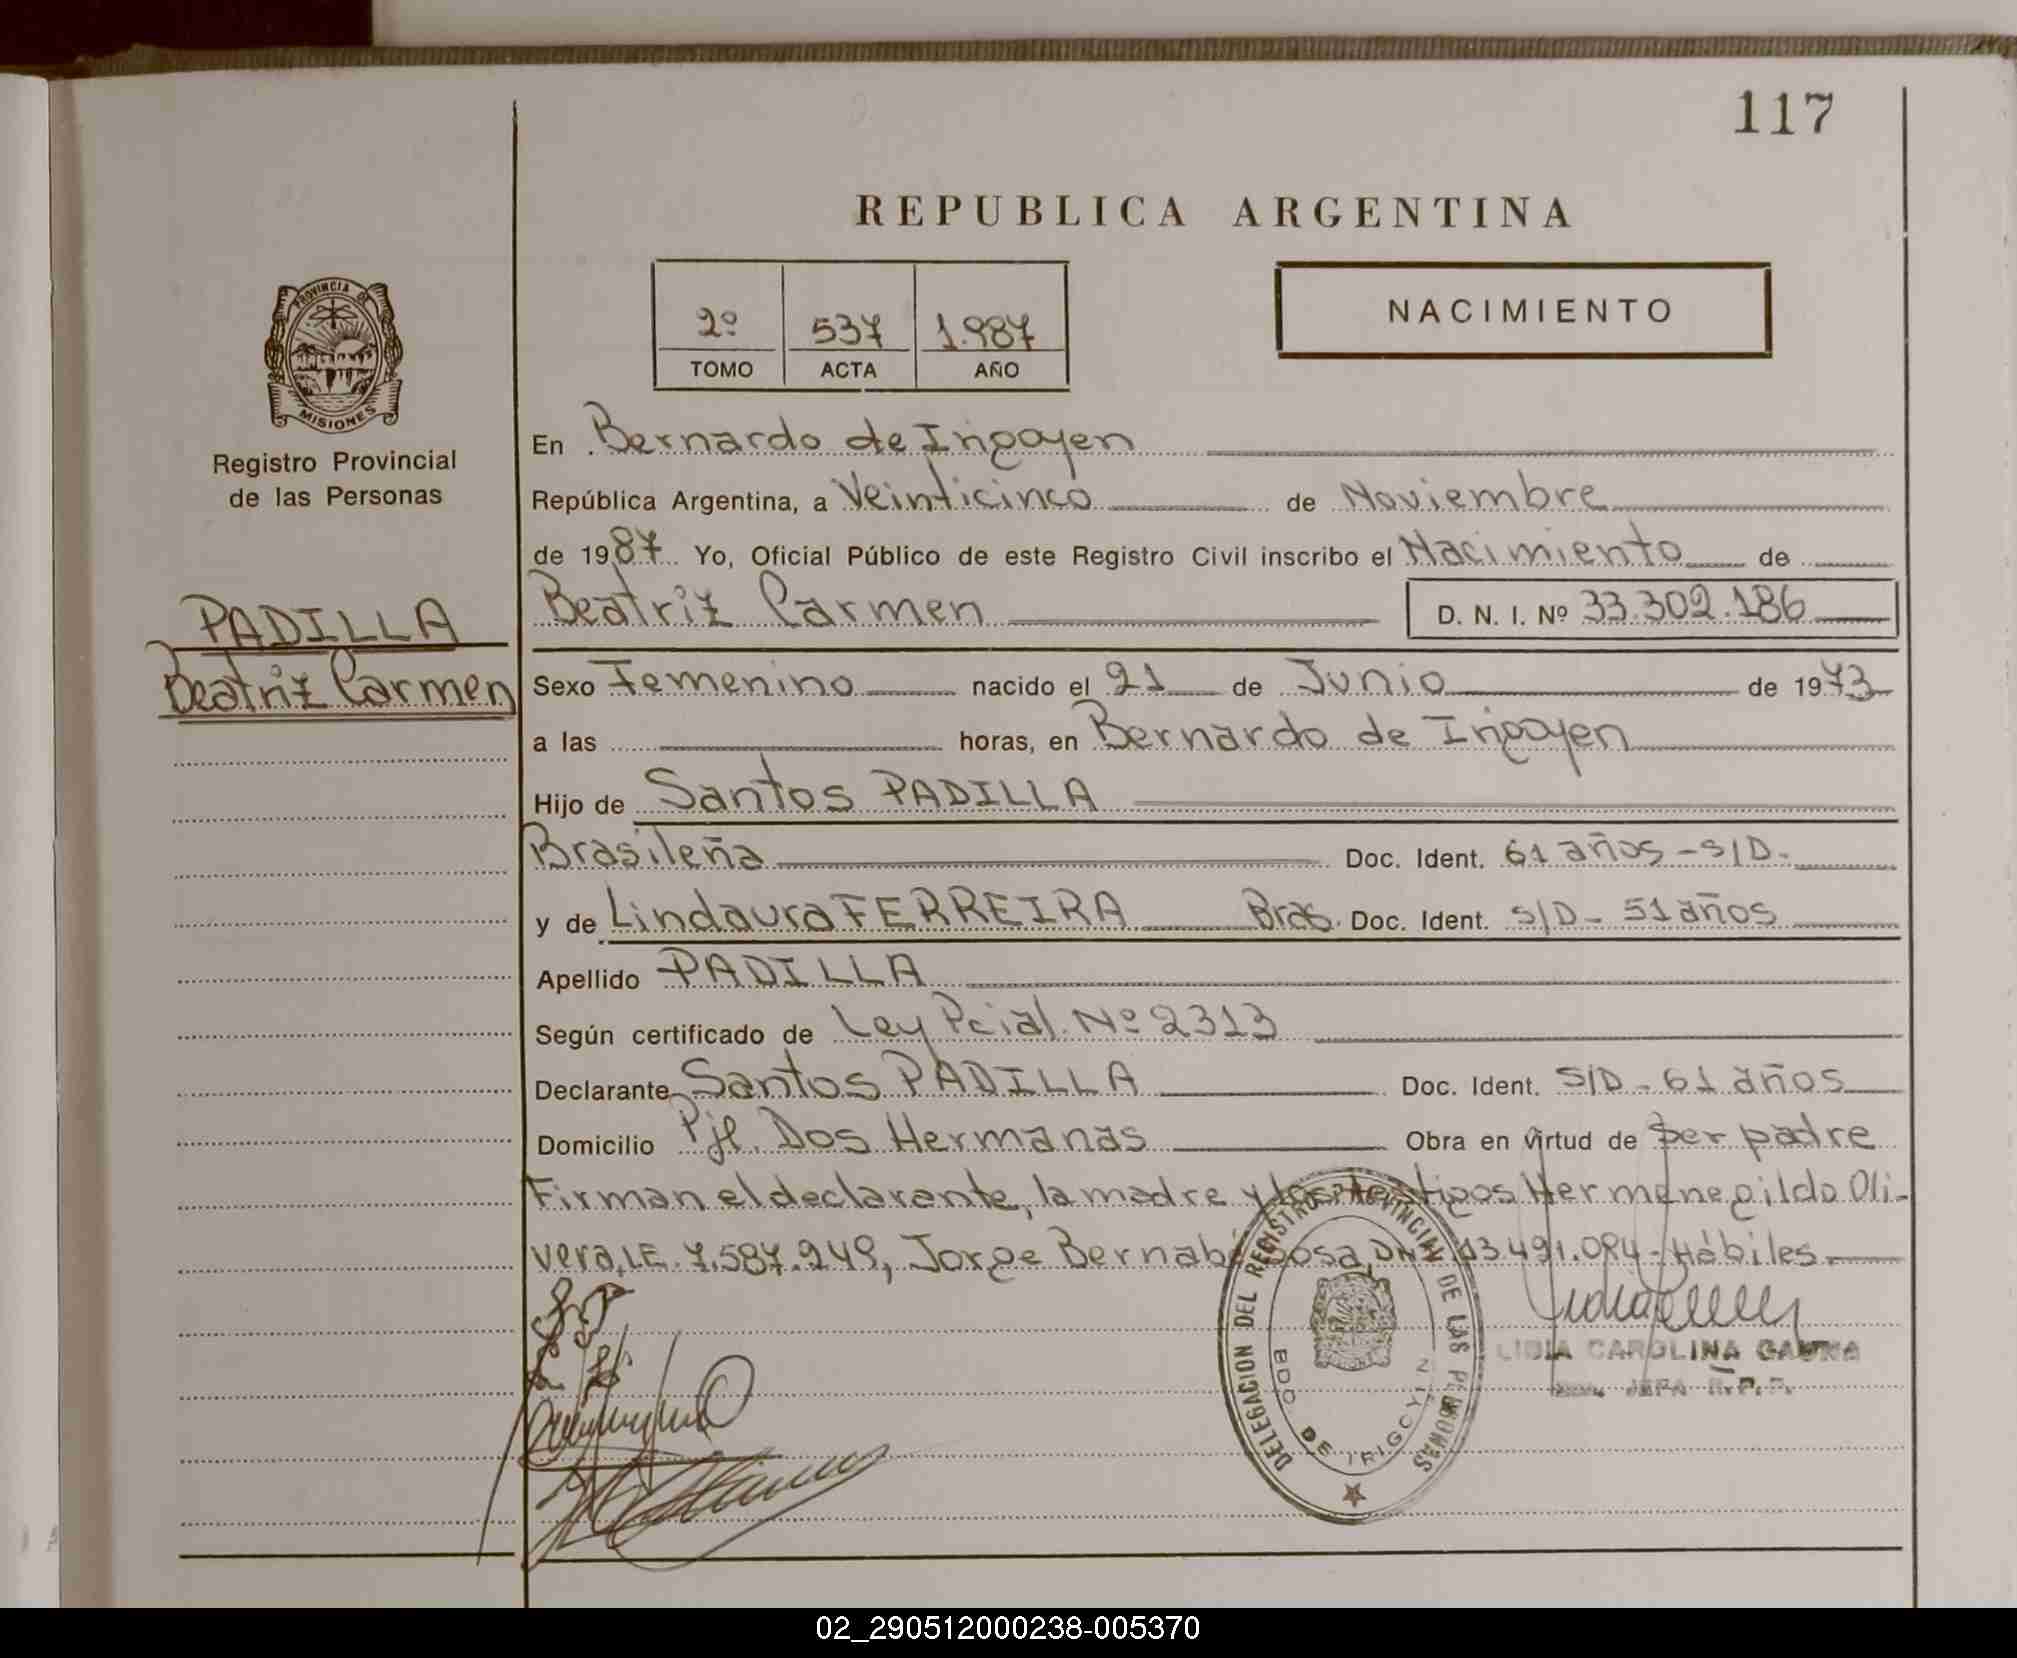 117
REPUBLICA ARGENTINA
2º 537 1.987
TOMO ACTA AÑO
NACIMIENTO
PROVINCIA DE
MISIONES
Registro Provincial
de las Personas
PADILLA
Beatriz Carmen
En Bernardo de Irigoyen
República Argentina, a Veinticinco de Noviembre
de 1987 Yo, Oficial Público de este Registro Civil inscribo el Nacimiento de
Beatriz Carmen D. N. I. Nº 33.302.186
Sexo Femenino nacido el 21 de Junio de 1973
a las horas, en Bernardo de Irigoyen
Hijo de Santos PADILLA
Brasileña Doc. Ident. 61 años - S/D.
y de Lindaura FERREIRA Bras. Doc. Ident. S/D - 51 años
Apellido PADILLA
Según certificado de Ley Pcial. Nº 2313
Declarante Santos PADILLA Doc. Ident. S/D - 61 años
Domicilio Pje. Dos Hermanas Obra en virtud de ser padre
Firman el declarante, la madre y los testigos Hermenegildo Oli-
vera, LE. 7.587.249, Jorge Bernabé Sosa, DNI 13.491.084 - Hábiles.
DELEGACION DEL REGISTRO PROVINCIAL DE LAS PERSONAS
BDO. DE IRIGOYEN
LIDIA CAROLINA GAUNA
JEFA R.P.P.
02_290512000238-005370